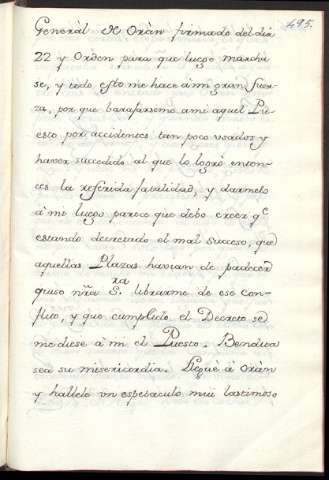 495.
General de Oràn firmado del dia
22 y Orden para que luego marcha
se, y todo esto me hace à mi gran fuer
za, por que barajarseme ami aquel Pu
esto por accidentes tan poco usados y
haver succedido al que lo logrò enton-
ces la referida fatalidad, y darmelo
à mi luego parece que debo creer q.e
estando decretado el mal suceso, que
aquellas Plazas havian de padecer
quiso nr̃a S.ra librarme de ese con-
flito, y que cumplido el Decreto se
me diese à mi el Puesto. Bendita
sea su misericordia. Llegué à Oràn
y hallelo un espetaculo mui lastimoso